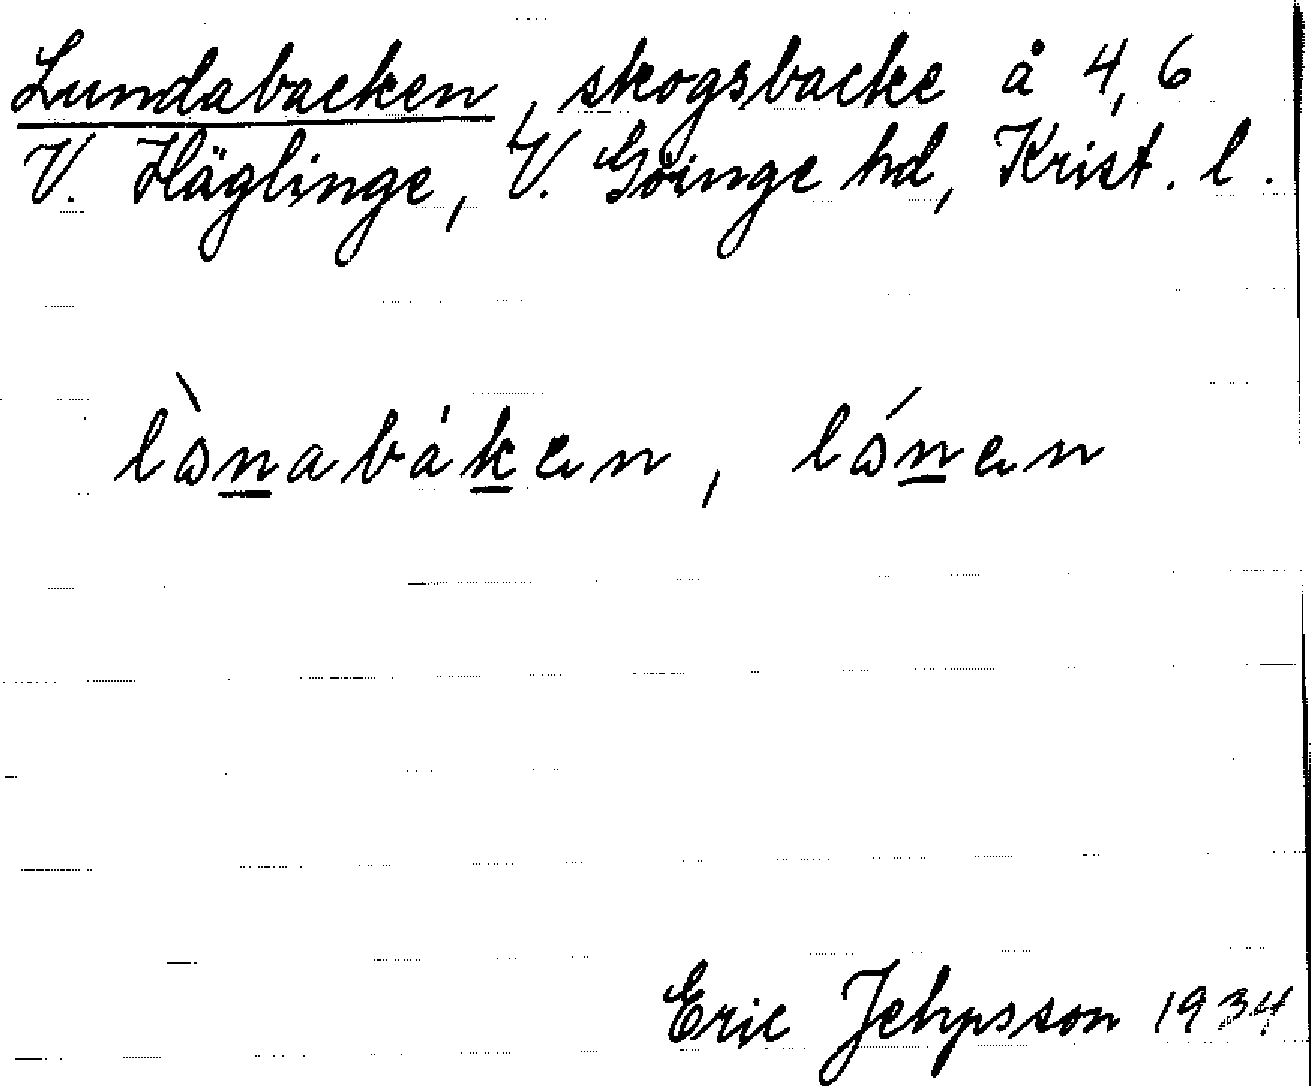 Lundabacken, skogsbacke å 4,6
V. Häglinge, V. Göinge hd, Krist. l.
lò̱nabá̱ken, ló̱nen
Eric Jehpsson 1934